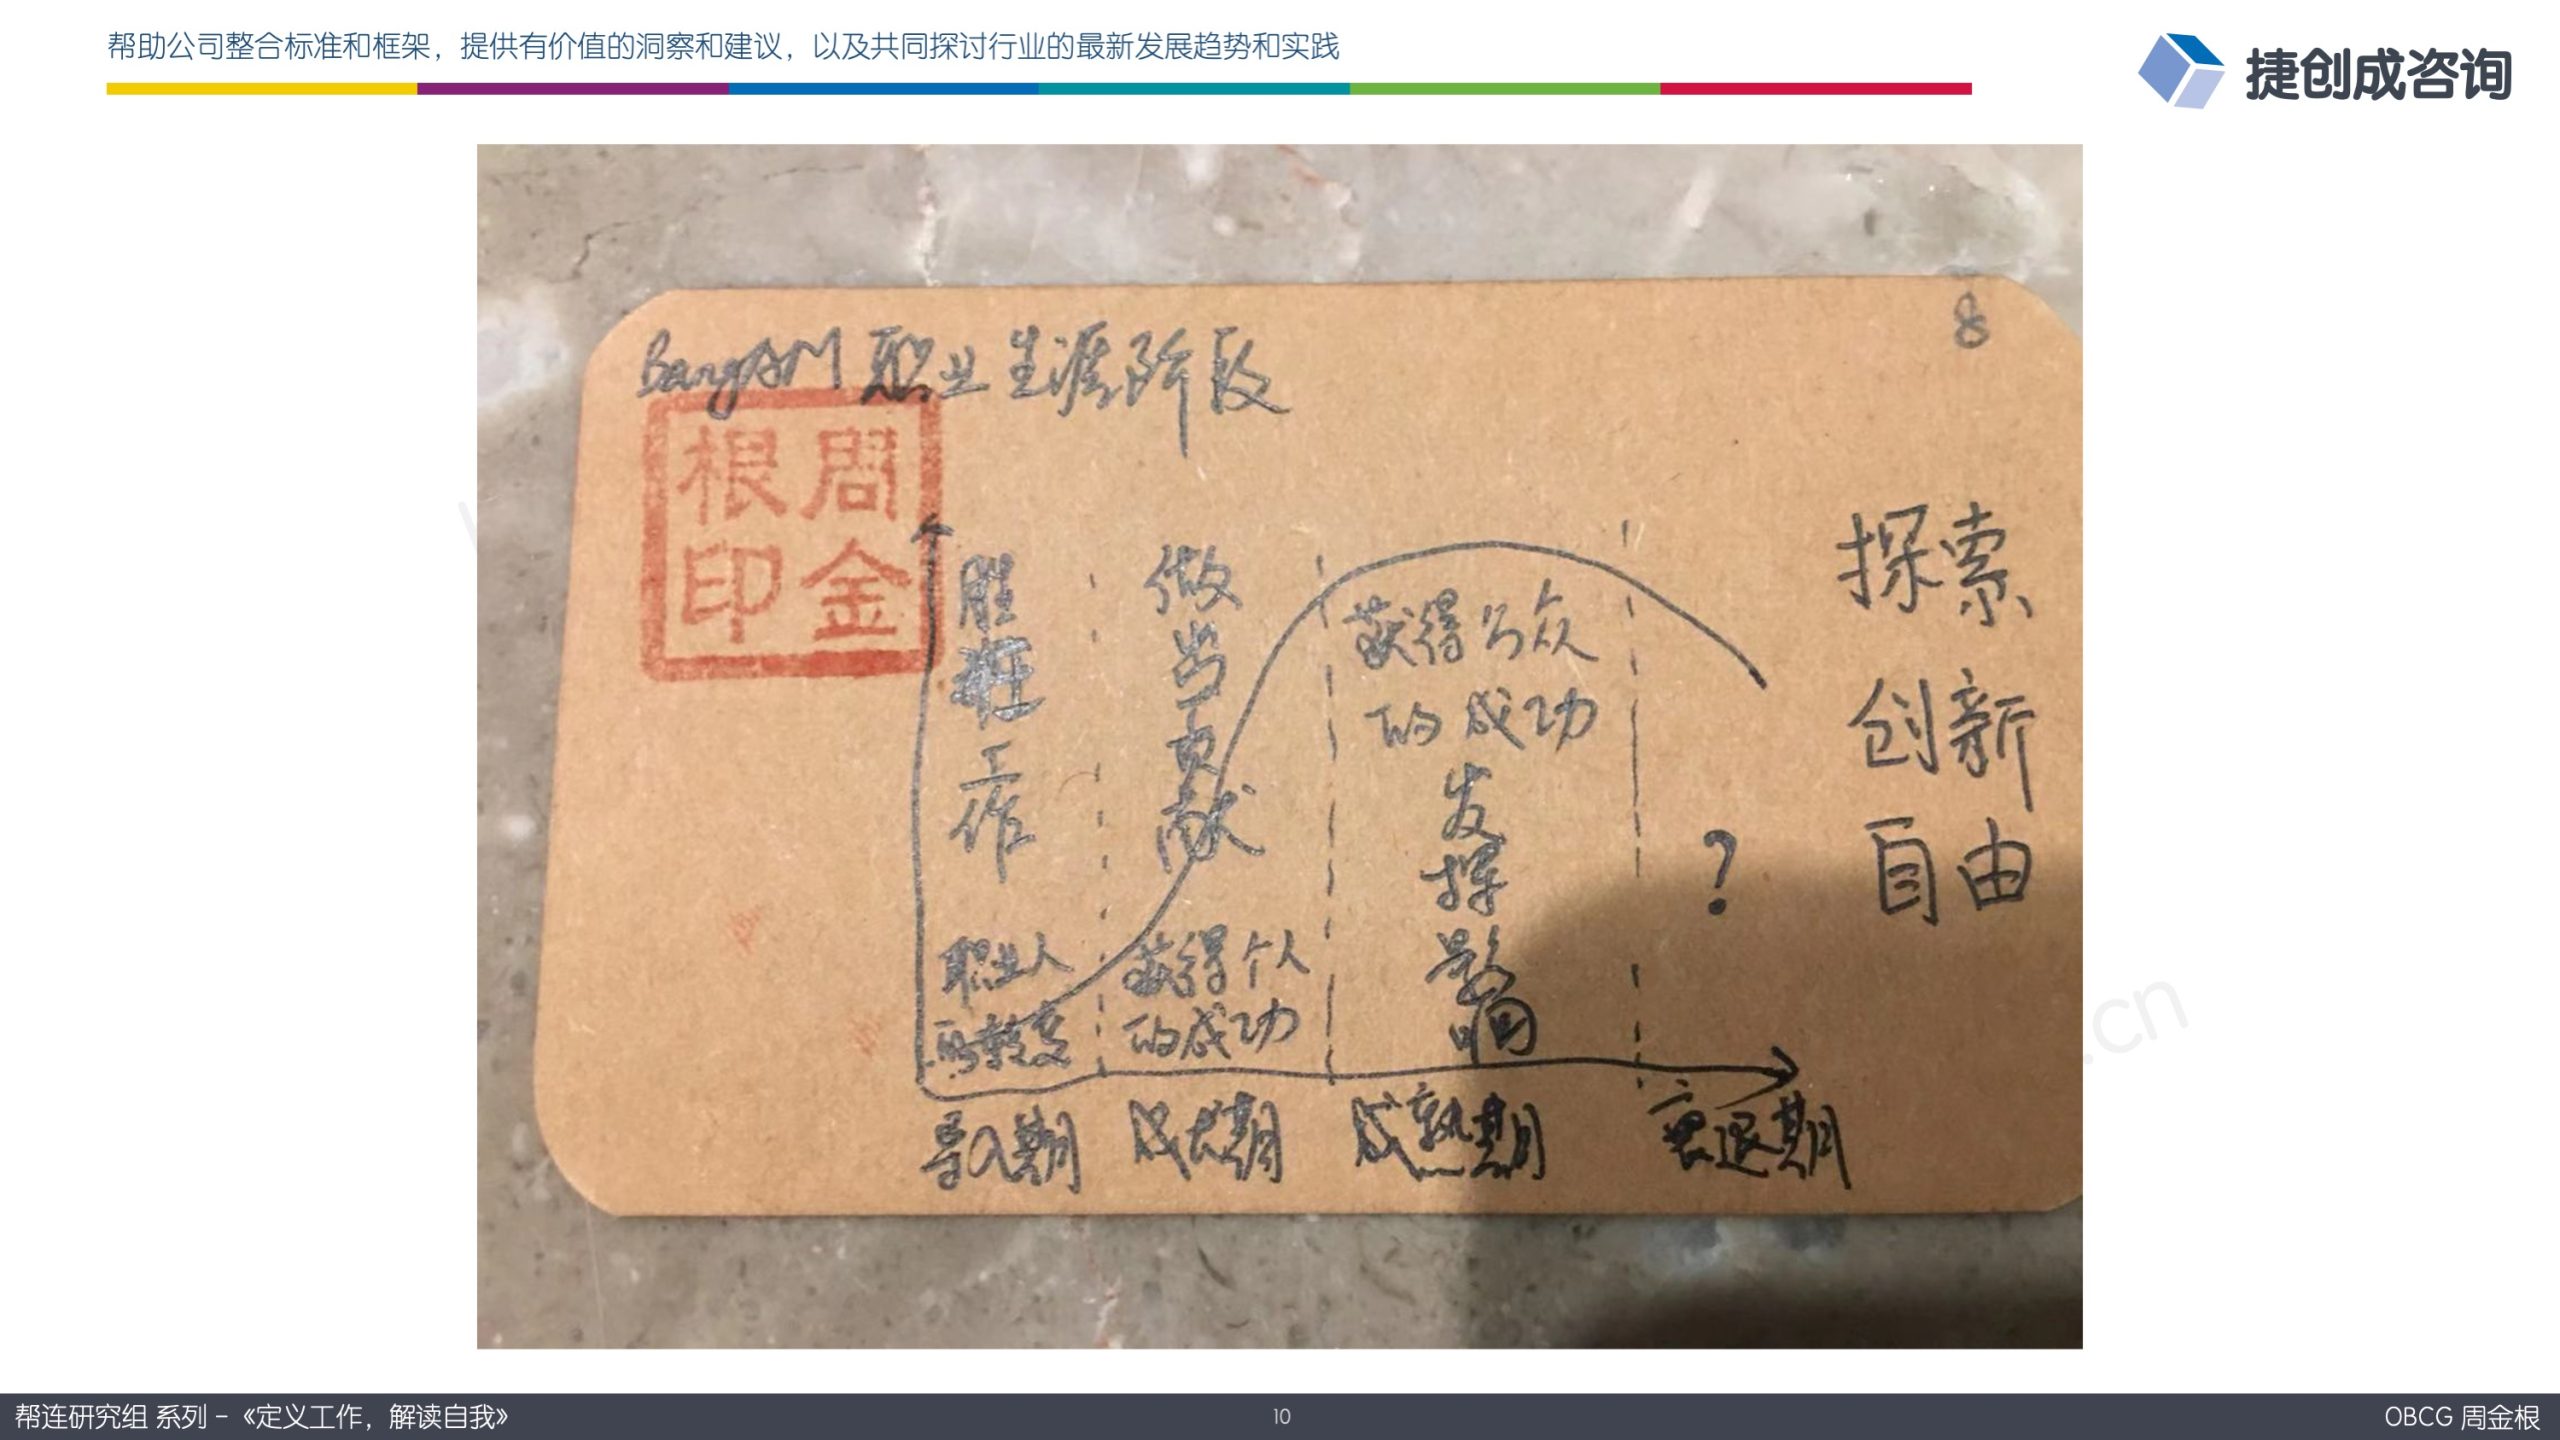 帮助公司整合标准和框架，提供有价值的洞察和建议，以及共同探讨行业的最新发展趋势和实践
捷创成咨询
8
BangAM 职业生涯阶段
周金根印
胜任工作
做出贡献
获得公众
的成功
发挥影响
?
职业人
的转变
获得个人
的成功
导入期 成长期 成熟期 衰退期
探索
创新
自由
.cn
帮连研究组 系列 - 《定义工作，解读自我》
10
OBCG 周金根